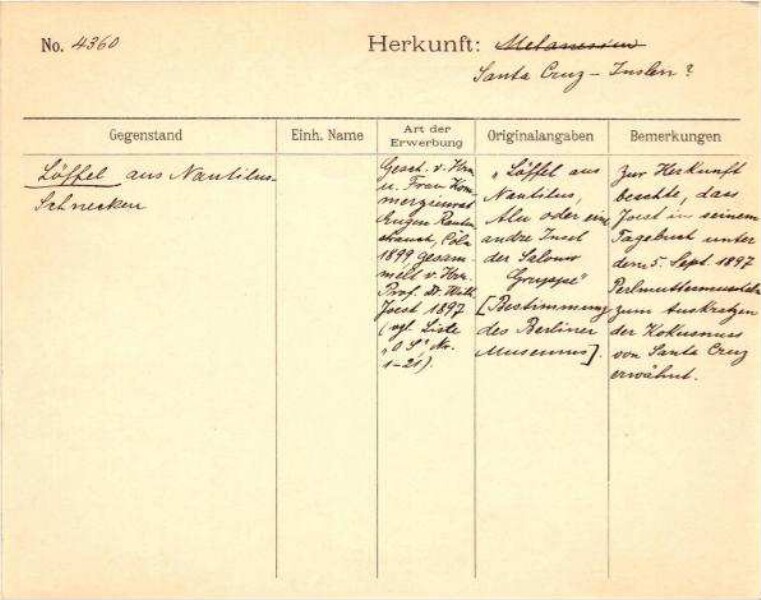 No. 4360
Herkunft: Melanesien
Santa Cruz - Inseln?
Gegenstand
Einh. Name
Art der
Erwerbung
Originalangaben
Bemerkungen
Löffel aus Nautilus-
Schnecken
Gesch. v. Hrn
u. Frau Kom-
merzienrat
Eugen Rauten-
strauch, Cöln
1899, gesam-
melt v. Hrn.
Prof. Dr. Wilh.
Joest 1897
(vgl. Liste
„O S", Nr.
1-21).
„Löffel aus
Nautilus,
Alu oder eine
andre Insel
der Salomo
Gruppe"
[Bestimmung
des Berliner
Museums].
Zur Herkunft
beachte, dass
Joest in seinem
Tagebuch unter
dem 5. Sept. 1897
Perlmuttermuscheln
zum Auskratzen
der Kokusnuss
von Santa Cruz
erwähnt.